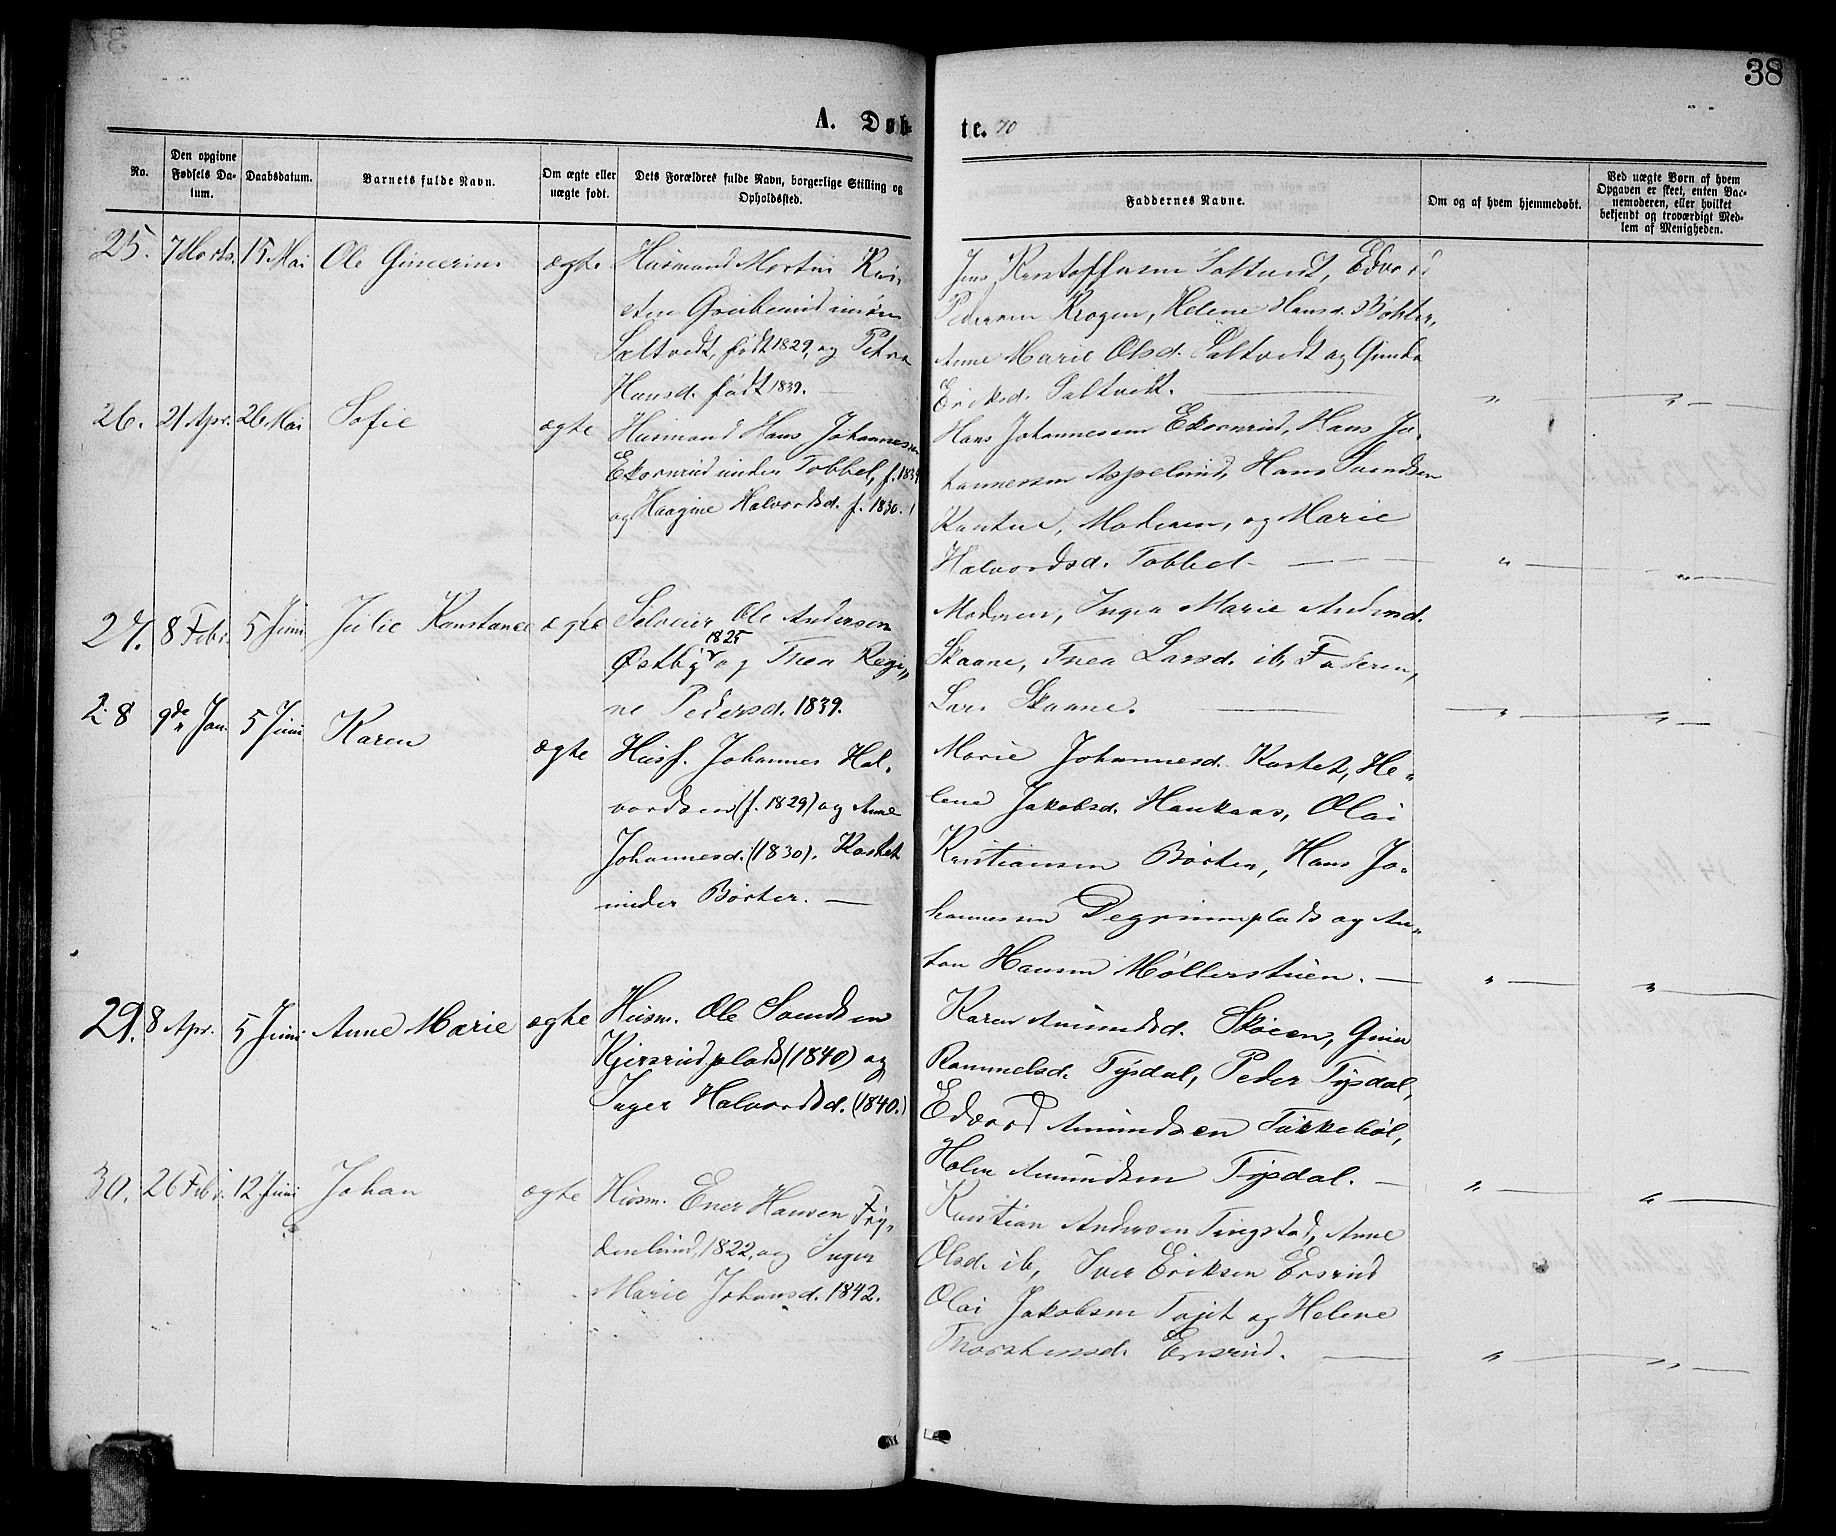 38
A. Døb-
te. 70
No.
Den opgivne Fødsels Datum.
Daabsdatum.
Barnets fulde Navn.
Om ægte eller uægte født.
Dets Forældres fulde Navn, borgerlige Stilling og Opholdssted.
Faddernes Navne.
Om og af hvem hjemmedøbt.
Ved uægte Børn af hvem Opgaven er skeet, enten Barnemoderen, eller hvilket bekjendt og troværdigt Medlem af Menigheden.
25. 7 Marts. 15 Mai Ole ægte
Husmand Martin Kri-
sten
Saltvedt, født 1829, og Petra
Hansd. født 1839. —
Jens Kristoffersen Saltvedt, Edvard
Pedersen Krogen, Helene Hansd. Bøhler,
Anne Marie Olsd. Saltvedt og
Eriksd. Saltvedt. — „ — „ —
26. 21 Apr. 26 Mai Sofie ægte
Husmand Hans Johannessen
Ekornrud under Tobbel, f. 1834
og Haagine Halvordsd. f. 1830.
Hans Johannessen Ekornrud, Hans Jo-
hannessen Aspelund, Hans Svendsen
Moderen, og Marie
Halvordsd. Tobbel — „ — „ —
27. 8 Febr. 5 Juni Julie Konstance ægte
Selveier Ole Andersen
1825
Østby og Thea Regi„
ne Pedersd. 1839.
Moderen, Inger Marie
Skaane, Thea Larsd. ib, Faderen,
Lars Skaane. — „ — „ —
28 9de Jan. 5 Juni Karen ægte
Husf. Johannes Hal-
vordsen (f. 1829) og Anne
Johannesd. (1830). Kastet
under Børter. —
Marie Johannesd. Kastet, He-
lene Jakobsd. Haukaas, Olai
Kristiansen Børter, Hans Jo-
hannessen Degrumplads og An-
ton Hansen Møllerstuen. — „ — „ —
29. 8 Apr. 5 Juni Anne Marie ægte
Husm. Ole Svendsen
Kjersrudplads (1840) og
Inger Halvordsd. (1840.)
Karen Amundsd. Skøien, Gina
Rammelsd. Tysdal, Peder Tysdal,
Edvard Amundsen Takkebøl,
Holm Amundsen Tysdal. — „ — „ —
30. 26 Febr. 12 Juni Johan ægte
Husm. Ener Hansen Fry„
denlund, 1822, og Inger
Marie Johansd. 1842.
Kristian Andersen Tingstad, Anne
Olsd. ib, Iver Eriksen Ersrud
Olai Jakobsen Tajet og Helene
Thorstensd. Ersrud. — „ — „ —